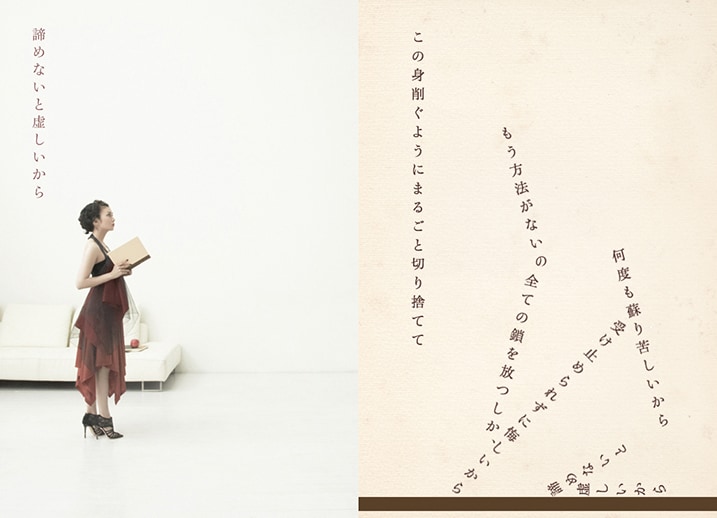 諦めないと虚しいから
この身削ぐようにまるごと切り捨てて
もう方法がないの全ての鎖を放つしか
何度も蘇り苦しいから
受け止められずに悔しいから
諦めないと
虚しいから